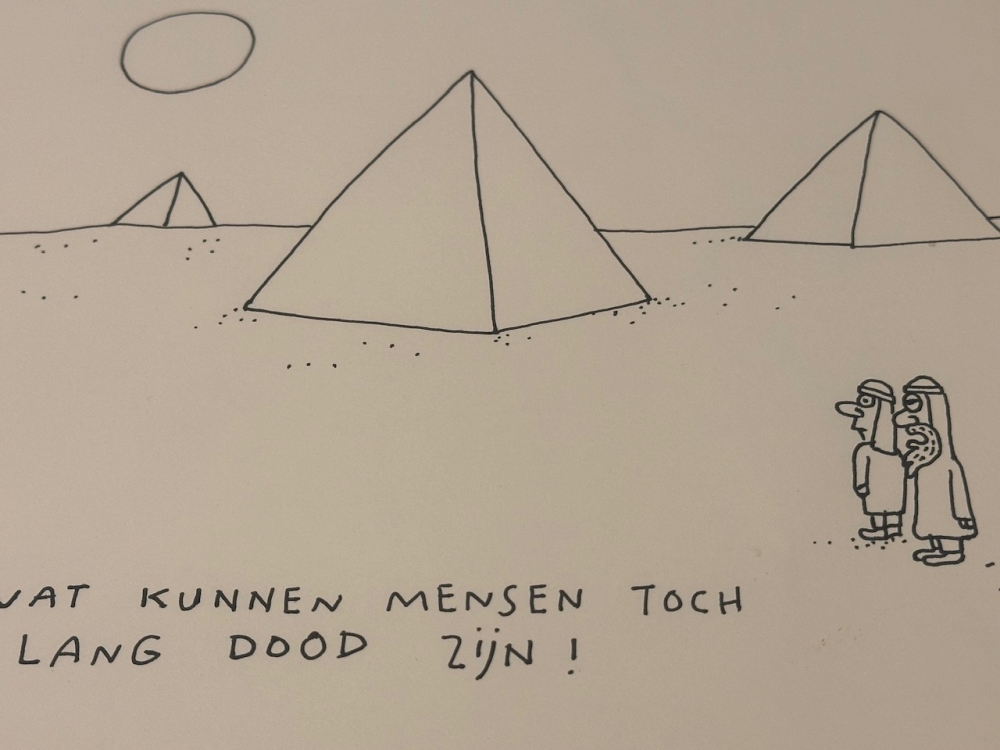 WAT KUNNEN MENSEN TOCH
LANG DOOD ZIJN !